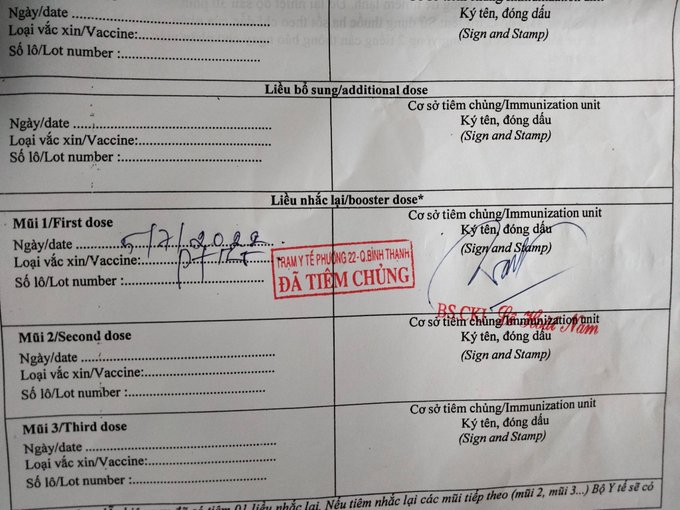 Ngày/date
Loại vắc xin/Vaccine:
Số lô/Lot number :
Cơ sở tiêm chủng/Immunization unit
Ký tên, đóng dấu
(Sign and Stamp)
Liều bổ sung/additional dose
Ngày/date
Loại vắc xin/Vaccine:
Số lô/Lot number :
Cơ sở tiêm chủng/Immunization unit
Ký tên, đóng dấu
(Sign and Stamp)
Liều nhắc lại/booster dose*
Mũi 1/First dose
Ngày/date 5/7/2022
Loại vắc xin/Vaccine:
Số lô/Lot number :
TRẠM Y TẾ PHƯỜNG 22-Q.BÌNH THẠNH
ĐÃ TIÊM CHỦNG
Cơ sở tiêm chủng/Immunization unit
Ký tên, đóng dấu
(Sign and Stamp)
BS.CKI. Nam
Mũi 2/Second dose
Ngày/date
Loại vắc xin/Vaccine:
Số lô/Lot number :
Cơ sở tiêm chủng/Immunization unit
Ký tên, đóng dấu
(Sign and Stamp)
Mũi 3/Third dose
Ngày/date
Loại vắc xin/Vaccine:
Số lô/Lot number :
Cơ sở tiêm chủng/Immunization unit
Ký tên, đóng dấu
(Sign and Stamp)
đã có tiêm 01 liều nhắc lại. Nếu tiêm nhắc lại các mũi tiếp theo (mũi 2, mũi 3...) Bộ Y tế sẽ có